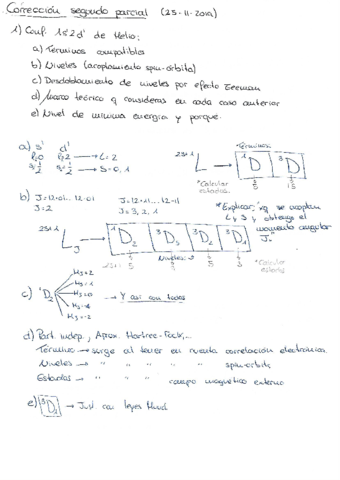 Corrección segundo parcial (25-11-2019)
1) Conf. 1s2d' de Helio:
a) Términos compatibles
b) Niveles (acoplamiento spin-órbita)
c) Desdoblamiento de niveles por efecto Zeeman
d) Marco teórico q consideras en cada caso anterior
e) Nivel de mínima energía y porque.
a) s' d' Términos:
l=0 l=2 → L=2
s=1/2 s=1/2 → S=0,1
2S+1 L → ¹D ³D
*Calcular estados. 5 15
b) J=|2-0|... |2+0| J=|2-1|... |2+1|
J=2 J=3,2,1
*Explicar: xq se acoplan L y S y obtengo el momento angular J.
2S+1 L J → ¹D₂ ³D₃ ³D₂ ³D₁
Niveles
5 7 5 3
*Calcular estados
c) ¹D₂
MJ=2
MJ=1
MJ=0 → Y así con todos
MJ=-1
MJ=-2
d) Part. indep., Aprox. Hartree-Fock,...
Términos → surge al tener en cuenta correlación electrónica
Niveles → " " " " " spin-órbita
Estados → " " " " campo magnético externo
e) ³D₁ → Just. con leyes Hund